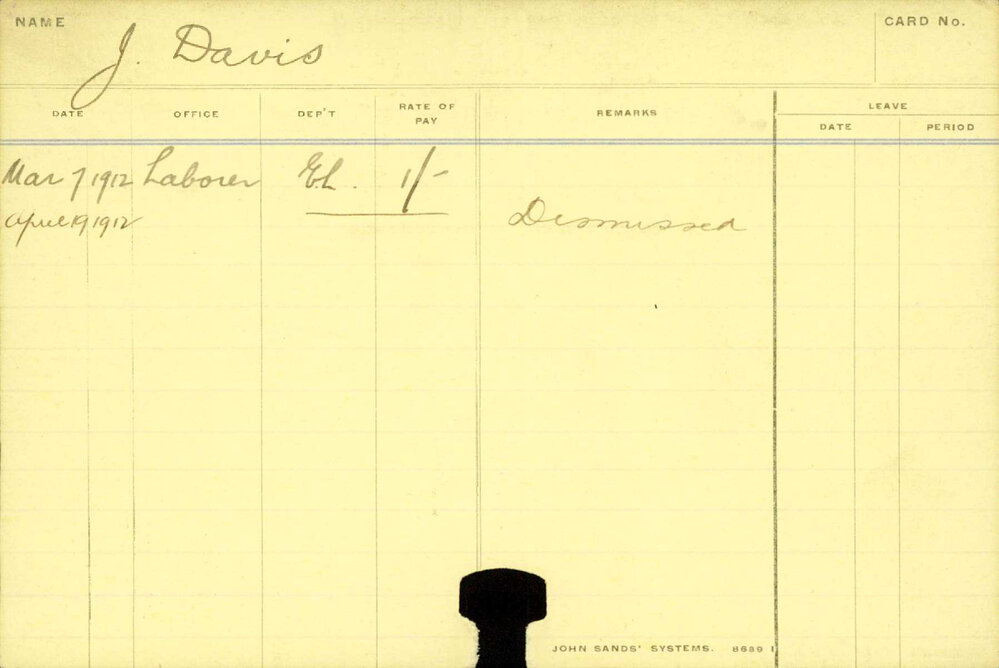 NAME J. Davis CARD No.
DATE OFFICE DEP'T RATE OF PAY REMARKS LEAVE
DATE PERIOD
Mar 7 1912 Laborer El. 1/-
April 19 1912 Dismissed
JOHN SANDS' SYSTEMS. 8689 1